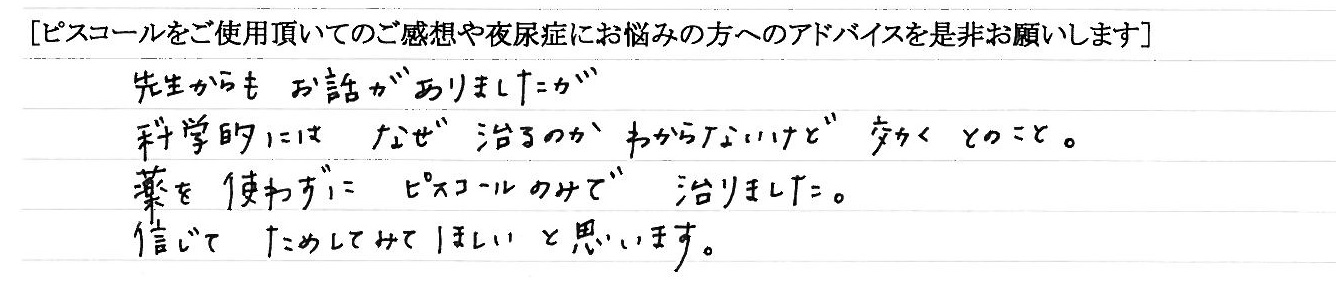 [ピスコールをご使用頂いてのご感想や夜尿症にお悩みの方へのアドバイスを是非お願いします]
先生からも お話がありましたが
科学的には なぜ 治るのか わからないけど 効く とのこと。
薬を 使わずに ピスコールのみで 治りました。
信じて ためしてみて ほしい と思います。